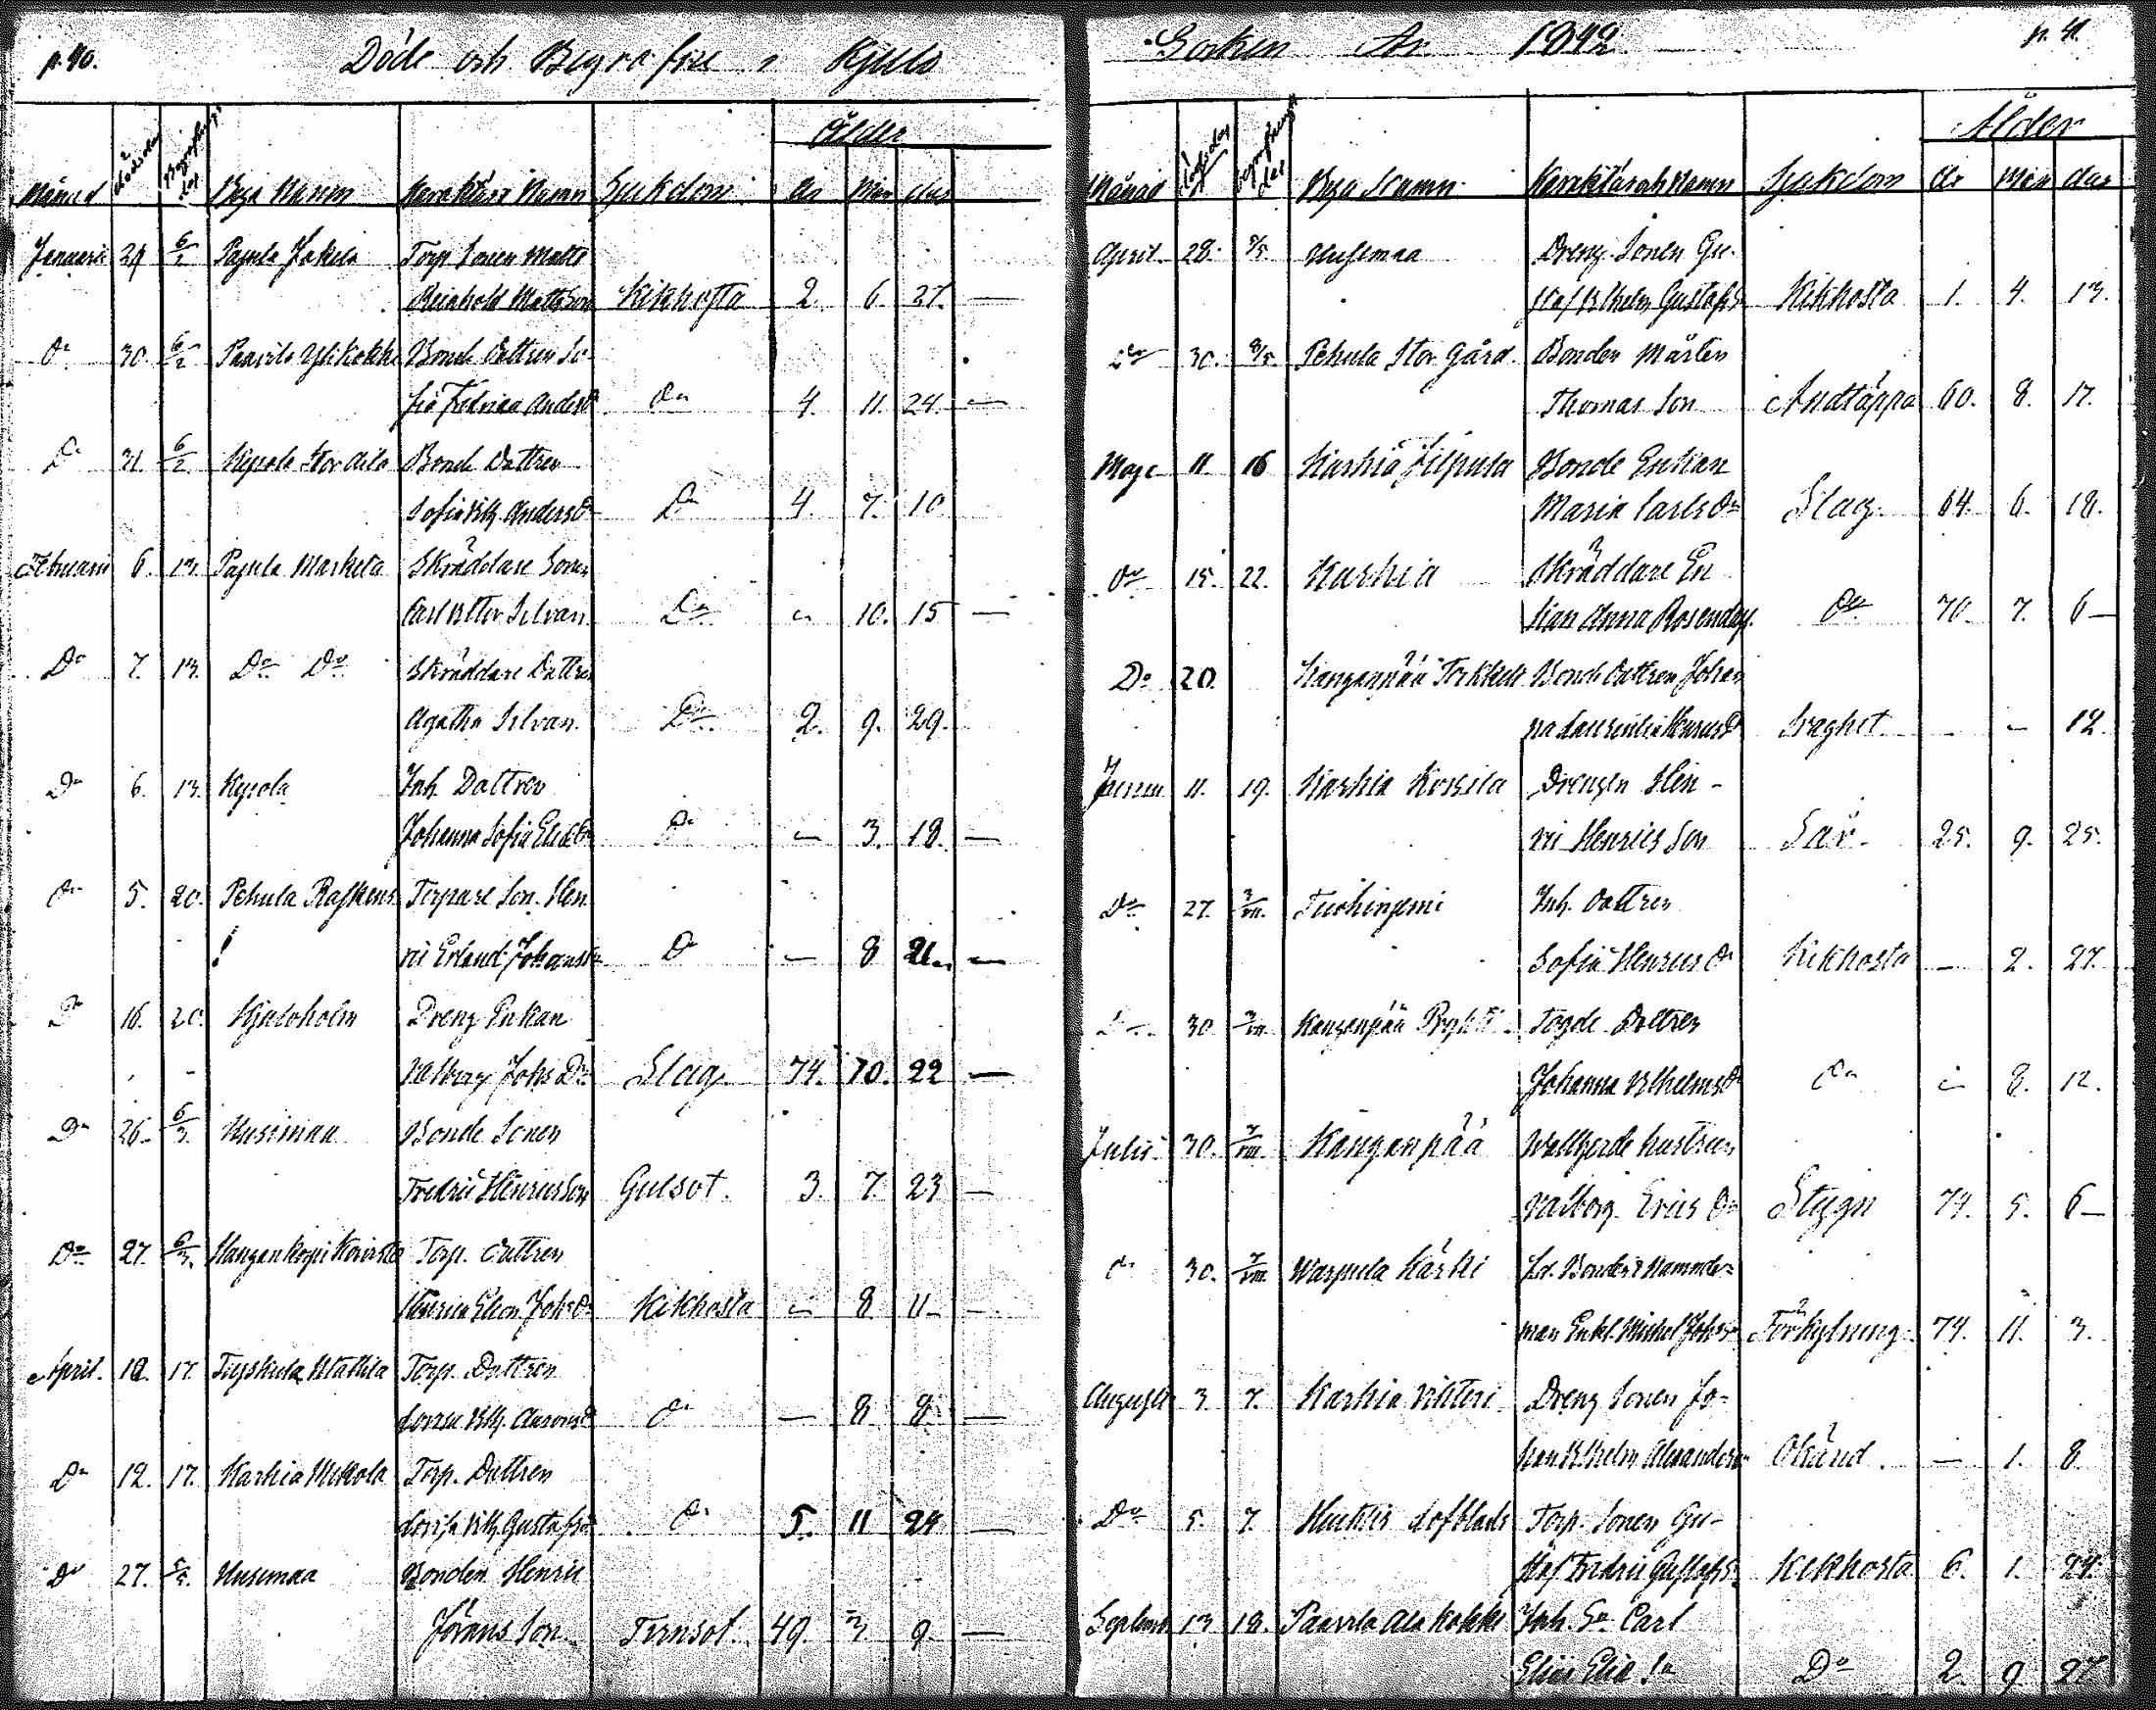 p. 40. Döde och Begrafne i Kjulo
Månad Dödsdag Begrafnings dag Byga Namn Karaktär o Namn Sjukdom Ålder år Mån dag
Januarii 29 6/2 Pajula Jakula Torp Sonen Matts
Reinhold Mattsson Kikhosta 2. 6. 27. —
Do 30. 6/2 Paavila Ylikokki Bonde Dottren So-
fia Fredrica Andersdr Do 4. 11. 24 —
Do 31. 6/2 Kepola Stor Bonde Dottren
Sofia Vilh. Andersdr Do 4. 7. 10
Februarii 6. 13. Pajula Markela Skräddare Sonen
Carl Victor Silvan Do — 10. 15 —
Do 7. 13. Do Do Skräddare Dottren
Agatha Silvan. Do 2. 9. 29.
Do 6. 13. Kepola Inh. Dottren
Johanna Sofia Do — 3. 18. —
Do 5. 20. Pehula Torpare Son. Hen
ric Erland Johansson Do — 8 21. —
Do 16. 20. Kjuloholm Dreng Enkan
Valborg Johs Dr Slag. 74. 10. 22 —
Do 26. 6/3. Uusimaa Bonde Sonen
Fredric Henricsson Gulsot. 3. 7. 23 —
Do 27. 6/3. Torp. Dottren
Henrica Johsdr Kikhosta — 8 11 —
April. 12. 17. Mattila Torp. Dottren
Lovisa Vilh. Do — 8. 8. —
Do 12. 17. Karhia Mikola Torp. Dottren
Lovisa Vilh. Gustafsdr Do 5. 11 24 —
Do 27. 5/5. Uusimaa Bonden Henric
Jörans Son Tvinsot. 49. 3. 9. —
Socken År 1842 p. 41.
Månad Dödsdag Begrafnings dag Byga Namn Karaktär och Namn Sjukdom Ålder år Mån dag
April 28. 8/5. Uusimaa Dreng. Sonen Gu-
staf Vilhelm Gustafss. Kikhosta 1. 4. 13.
Do 30. 8/5. Pehula Stor Gård Bonden Mårten
Thomas Son Andtäppa 60. 8. 17.
Maje 11. 16 Karhia Filpula Bonde Enkan
Maria Carls Dr Slag. 64. 6. 18.
Do 15. 22. Karhia Skräddare En
kan Anna Rosendahl. Do 70. 7. 6 —
Do 20. Kanganpää Torkkeli Bonde Dottren Johan
na Henricsdr Svaghet — — 12.
Junii 11. 19. Karhia Kossila Drengen Hen-
ric Henrics Son Sår. 25. 9. 25.
Do 27. 3/VII. Tuohiniemi Inh. Dottren
Sofia Henrics Dr Kikhosta — 2. 27.
Do 30. 3/VII Kanganpää Dottren
Johanna Vilhelmsdr Do — 8. 12.
Julii 30. 7/VIII. Kanganpää hustrun
Valborg Erics Dr Stygn 74. 5. 6 —
Do 30. 7/VIII. Warpula Kärki Fd. Bonden o Nämnde-
man Enkl. Michel Johss. Förkylning. 74. 11. 3.
Augusti 3. 7. Karhia Vikteri Dreng Sonen Jo-
han Vilhelm Alexanderss Okänd. — 1. 8.
Do 5. 7. Huktis Lofblads Torp. Sonen Gu-
staf Fredric Gustafss. Kikhosta 6. 1. 24.
Septemb. 13 18. Paavila Ala Kokki Inh. Sn Carl
Elias Elia Sn Do 2. 9. 27